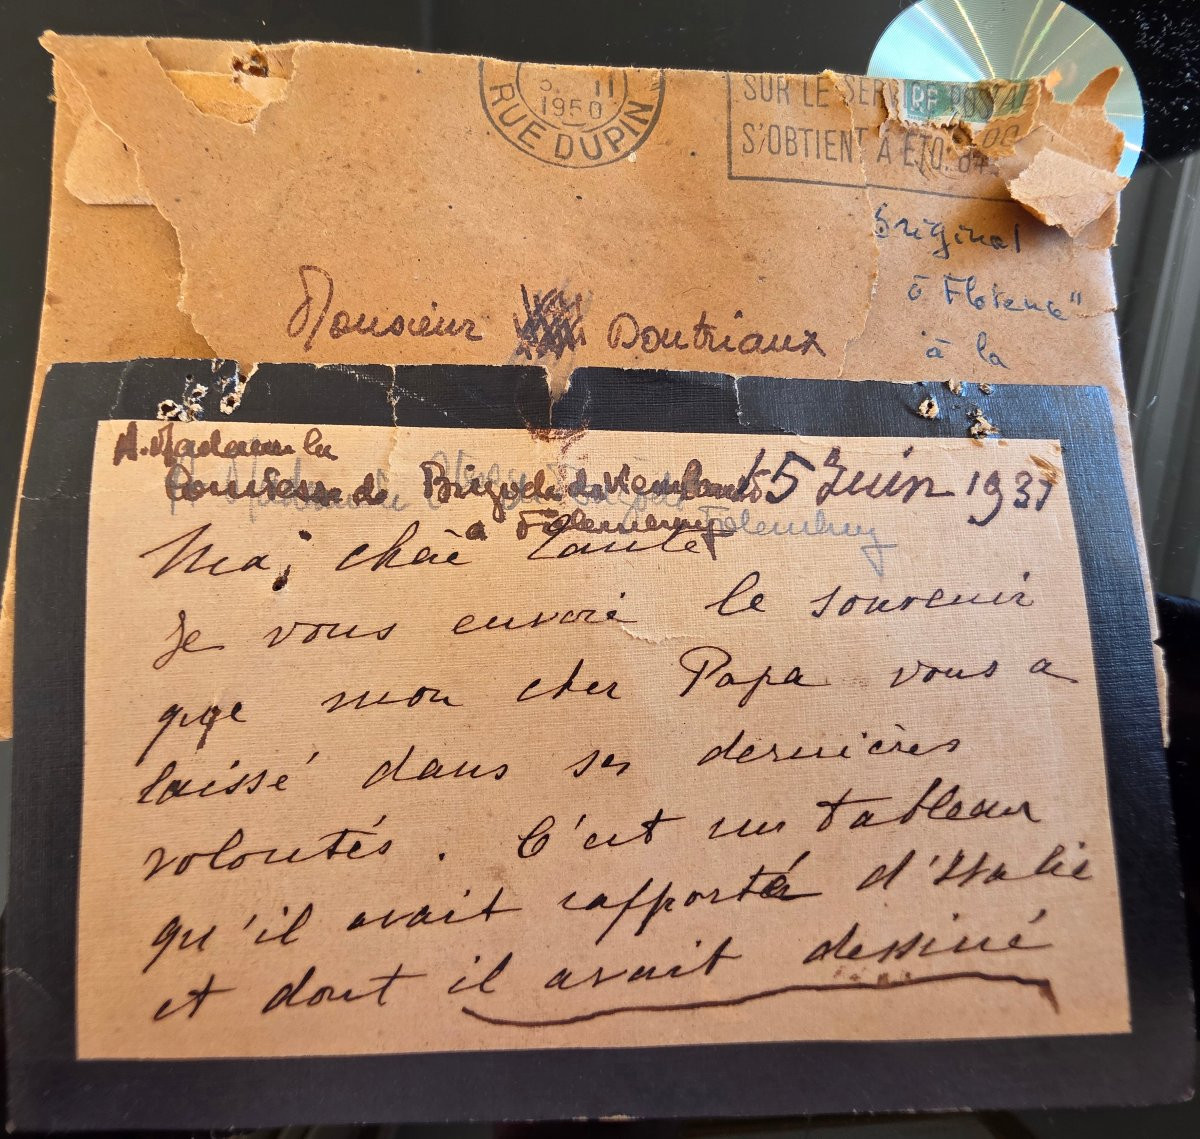 5. II
1950
RUE DUPIN
SUR LE SERV POSTAL
S'OBTIENT A ETO. 84
RF
original
à Florence"
à la
Monsieur Doutriaux
A. Madame la
Comtesse de Brigode de Kemlandt
à Folembray Folembray
15 Juin 1937
Ma chère Tante
Je vous envoie le souvenir
que mon cher Papa vous a
laissé dans ses dernières
volontés. C'est un tableau
qu'il avait rapporté d'Italie
et dont il avait dessiné